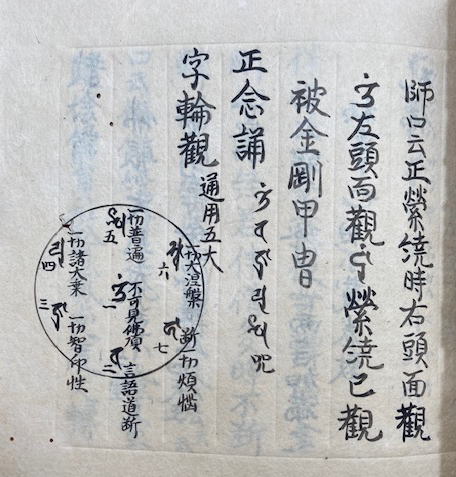 師口云正縈繞時右頭面觀
左頭面觀縈繞已觀
被金剛甲冑
正念誦 呪
字輪觀 通用五大
一切大涅槃 六
断一切煩惱 七
不可見佛頂 一
言語道断 二
一切普遍 五
一切諸大乗 四
一切智印性 三